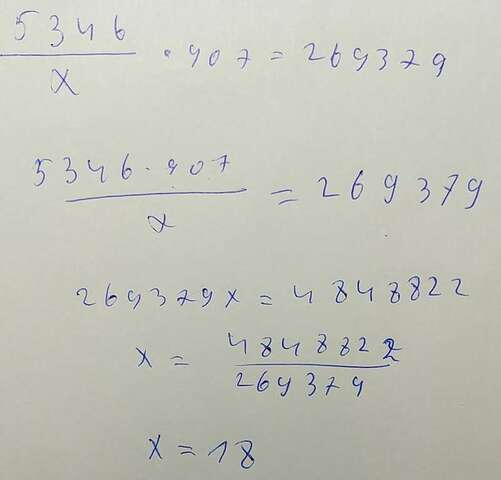 5346/x · 907 = 269379
5346 · 907/x = 269379
269379x = 4848822
x = 4848822/269379
x = 18